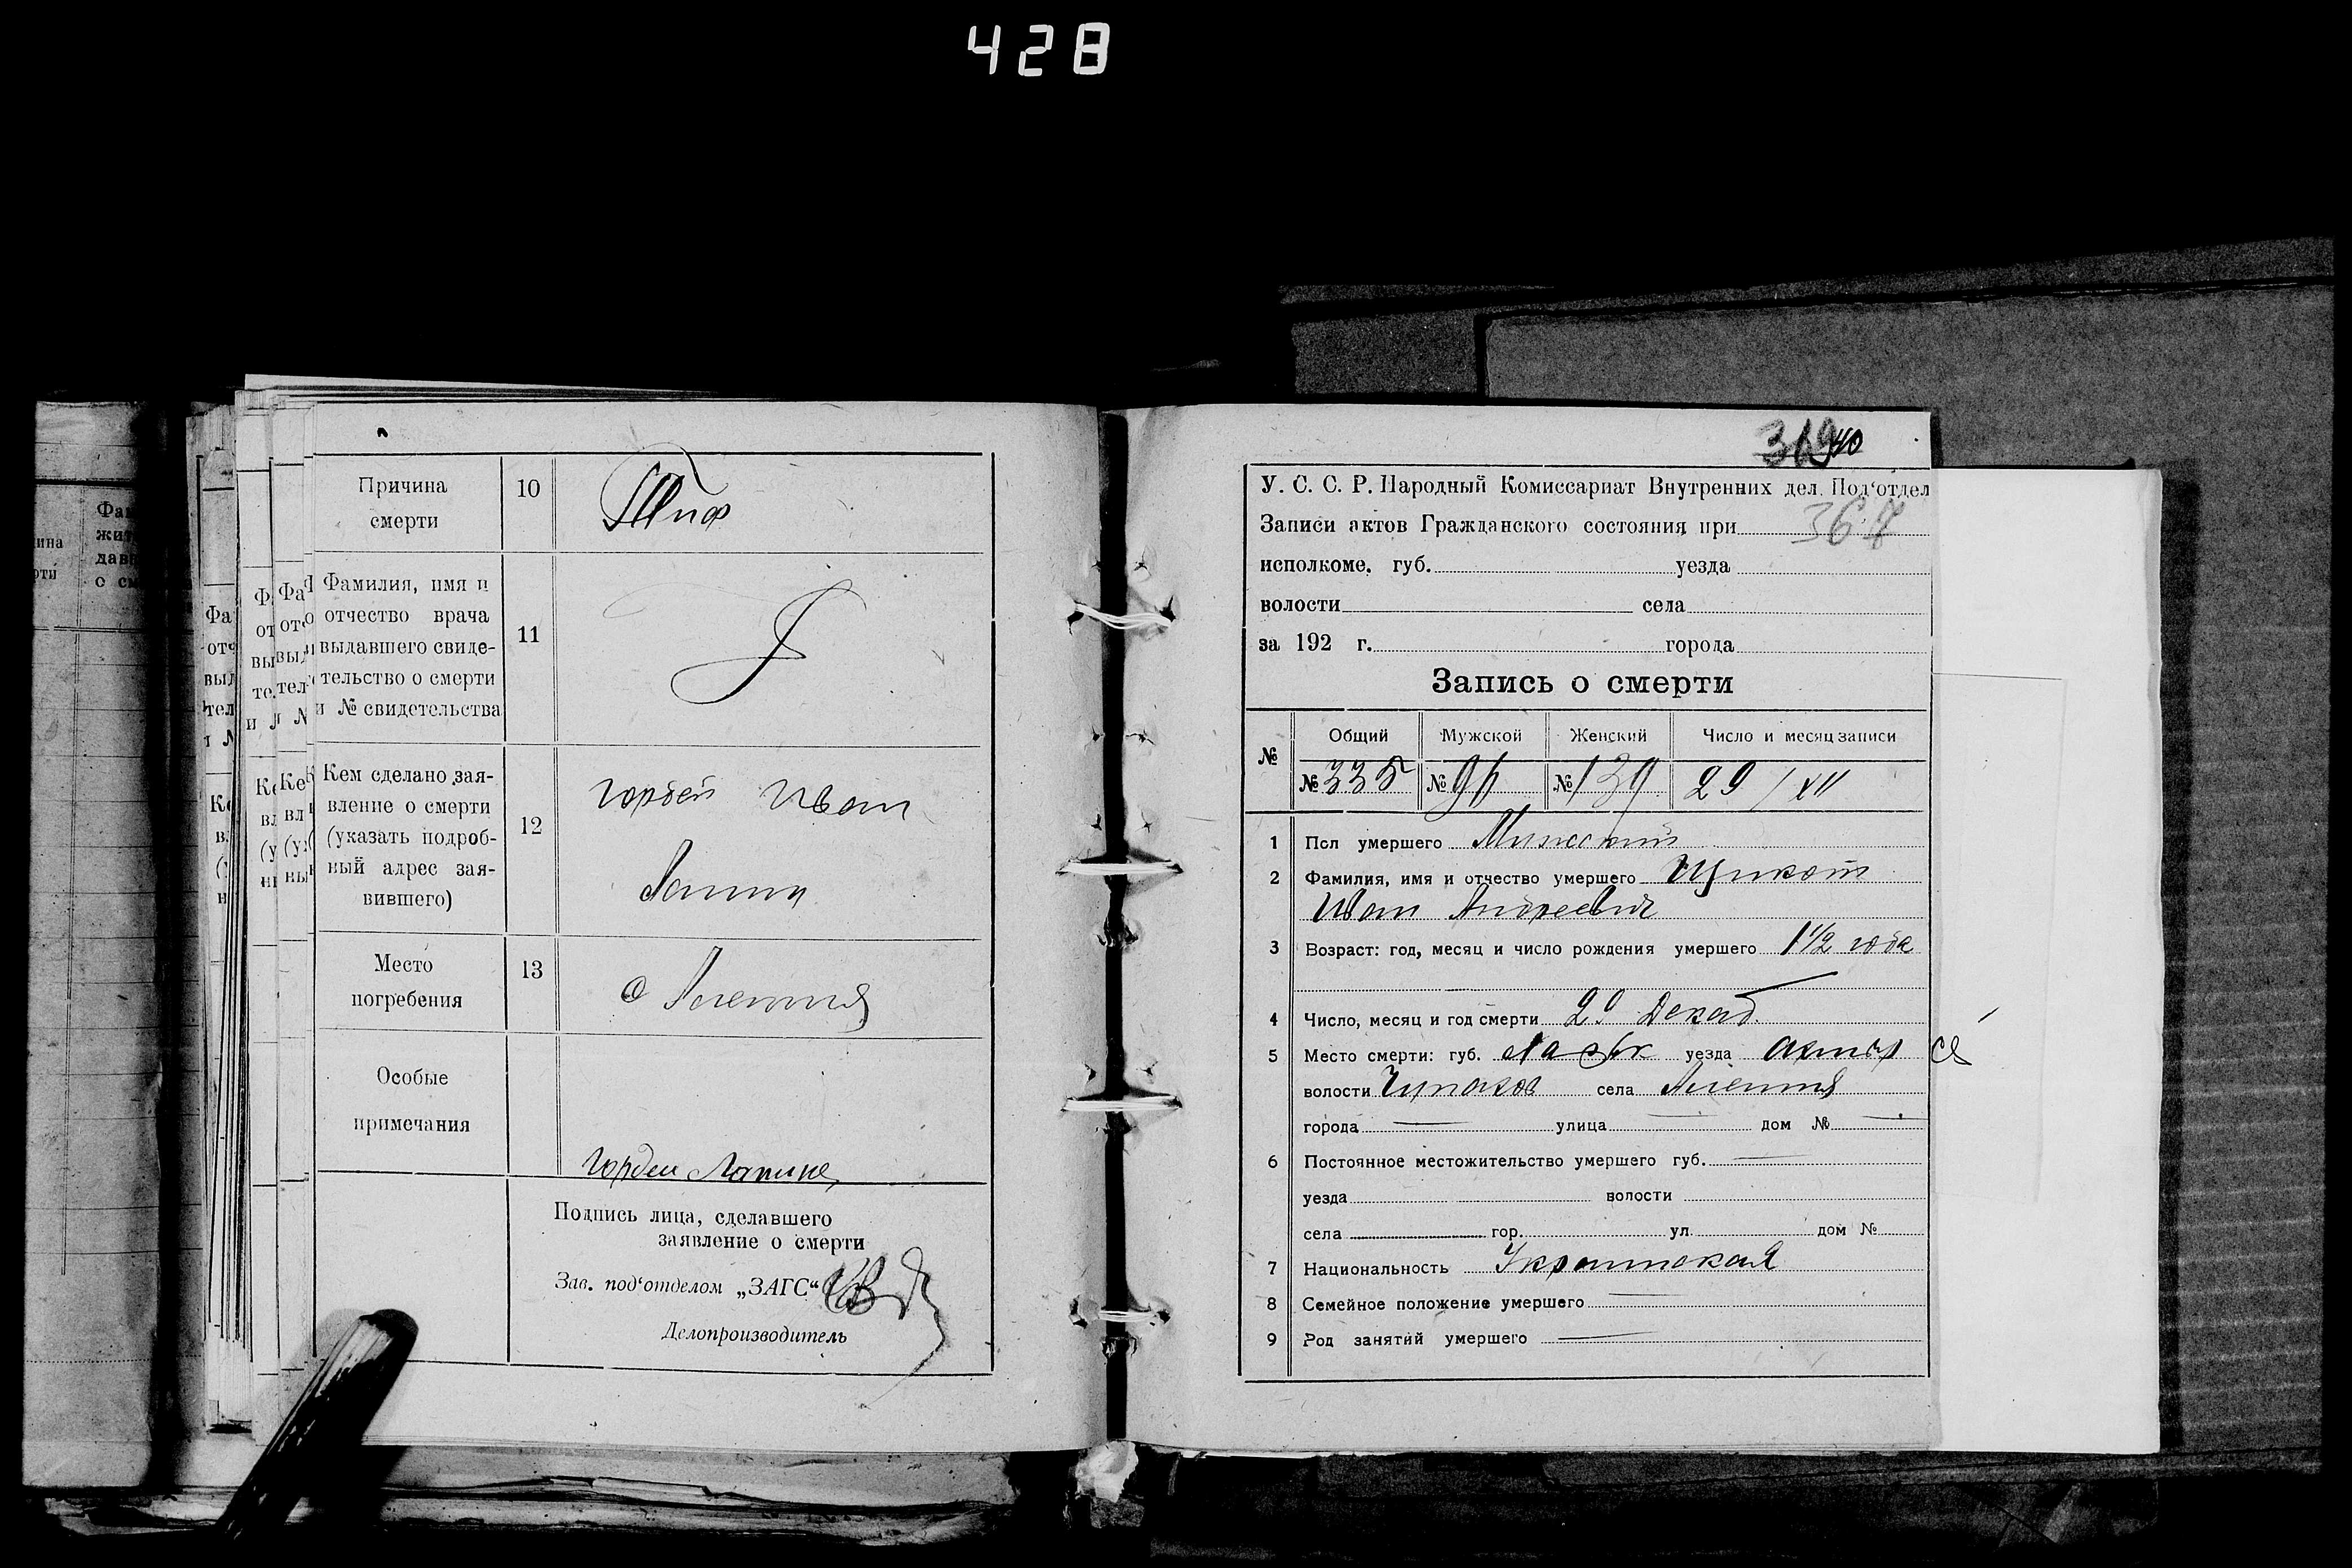 428
Причина смерти 10 Тиф
Фамилия, имя и
отчество врача
выдавшего свиде-
тельство о смерти
и № свидетельства
11
Кем сделано зая-
вление о смерти
(указать подроб-
ный адрес зая-
вившего)
12
Гордей Иван
Место
погребения
13
Особые
примечания
Гордей
Подпись лица, сделавшего
заявление о смерти
Зав. под‘отделом „ЗАГС“
Делопроизводитель
319 40
У. С. С. Р. Народный Комиссариат Внутренних дел. Под‘отдел
Записи актов Гражданского состояния при 367
исполкоме. губ. уезда
волости села
за 192 г. города
Запись о смерти
№ Общий Мужской Женский Число и месяц записи
№ 335 № № 139 29/XII
1 Пол умершего Мужской
2 Фамилия, имя и отчество умершего
Иван Андреевич
3 Возраст: год, месяц и число рождения умершего 1 1/2 года
4 Число, месяц и год смерти 29 Декаб.
5 Место смерти: губ. уезда Ахтыр
волости Чупахов села
города — улица — дом № —
6 Постоянное местожительство умершего губ. —
уезда волости
села гор. ул. дом №
7 Национальность Украинская
8 Семейное положение умершего —
9 Род занятий умершего —